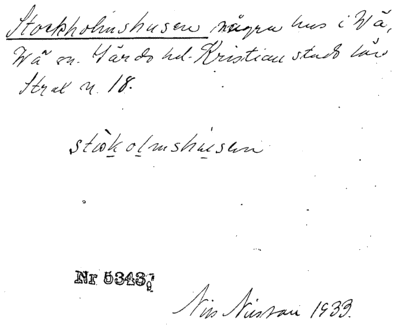 Stockholmshusen några hus i Wä,
Wä sn. Gärds hd. Kristianstads län
Strat n. 18.
stòkolmshusen
Nr 5343
Nils Nilsson 1933.